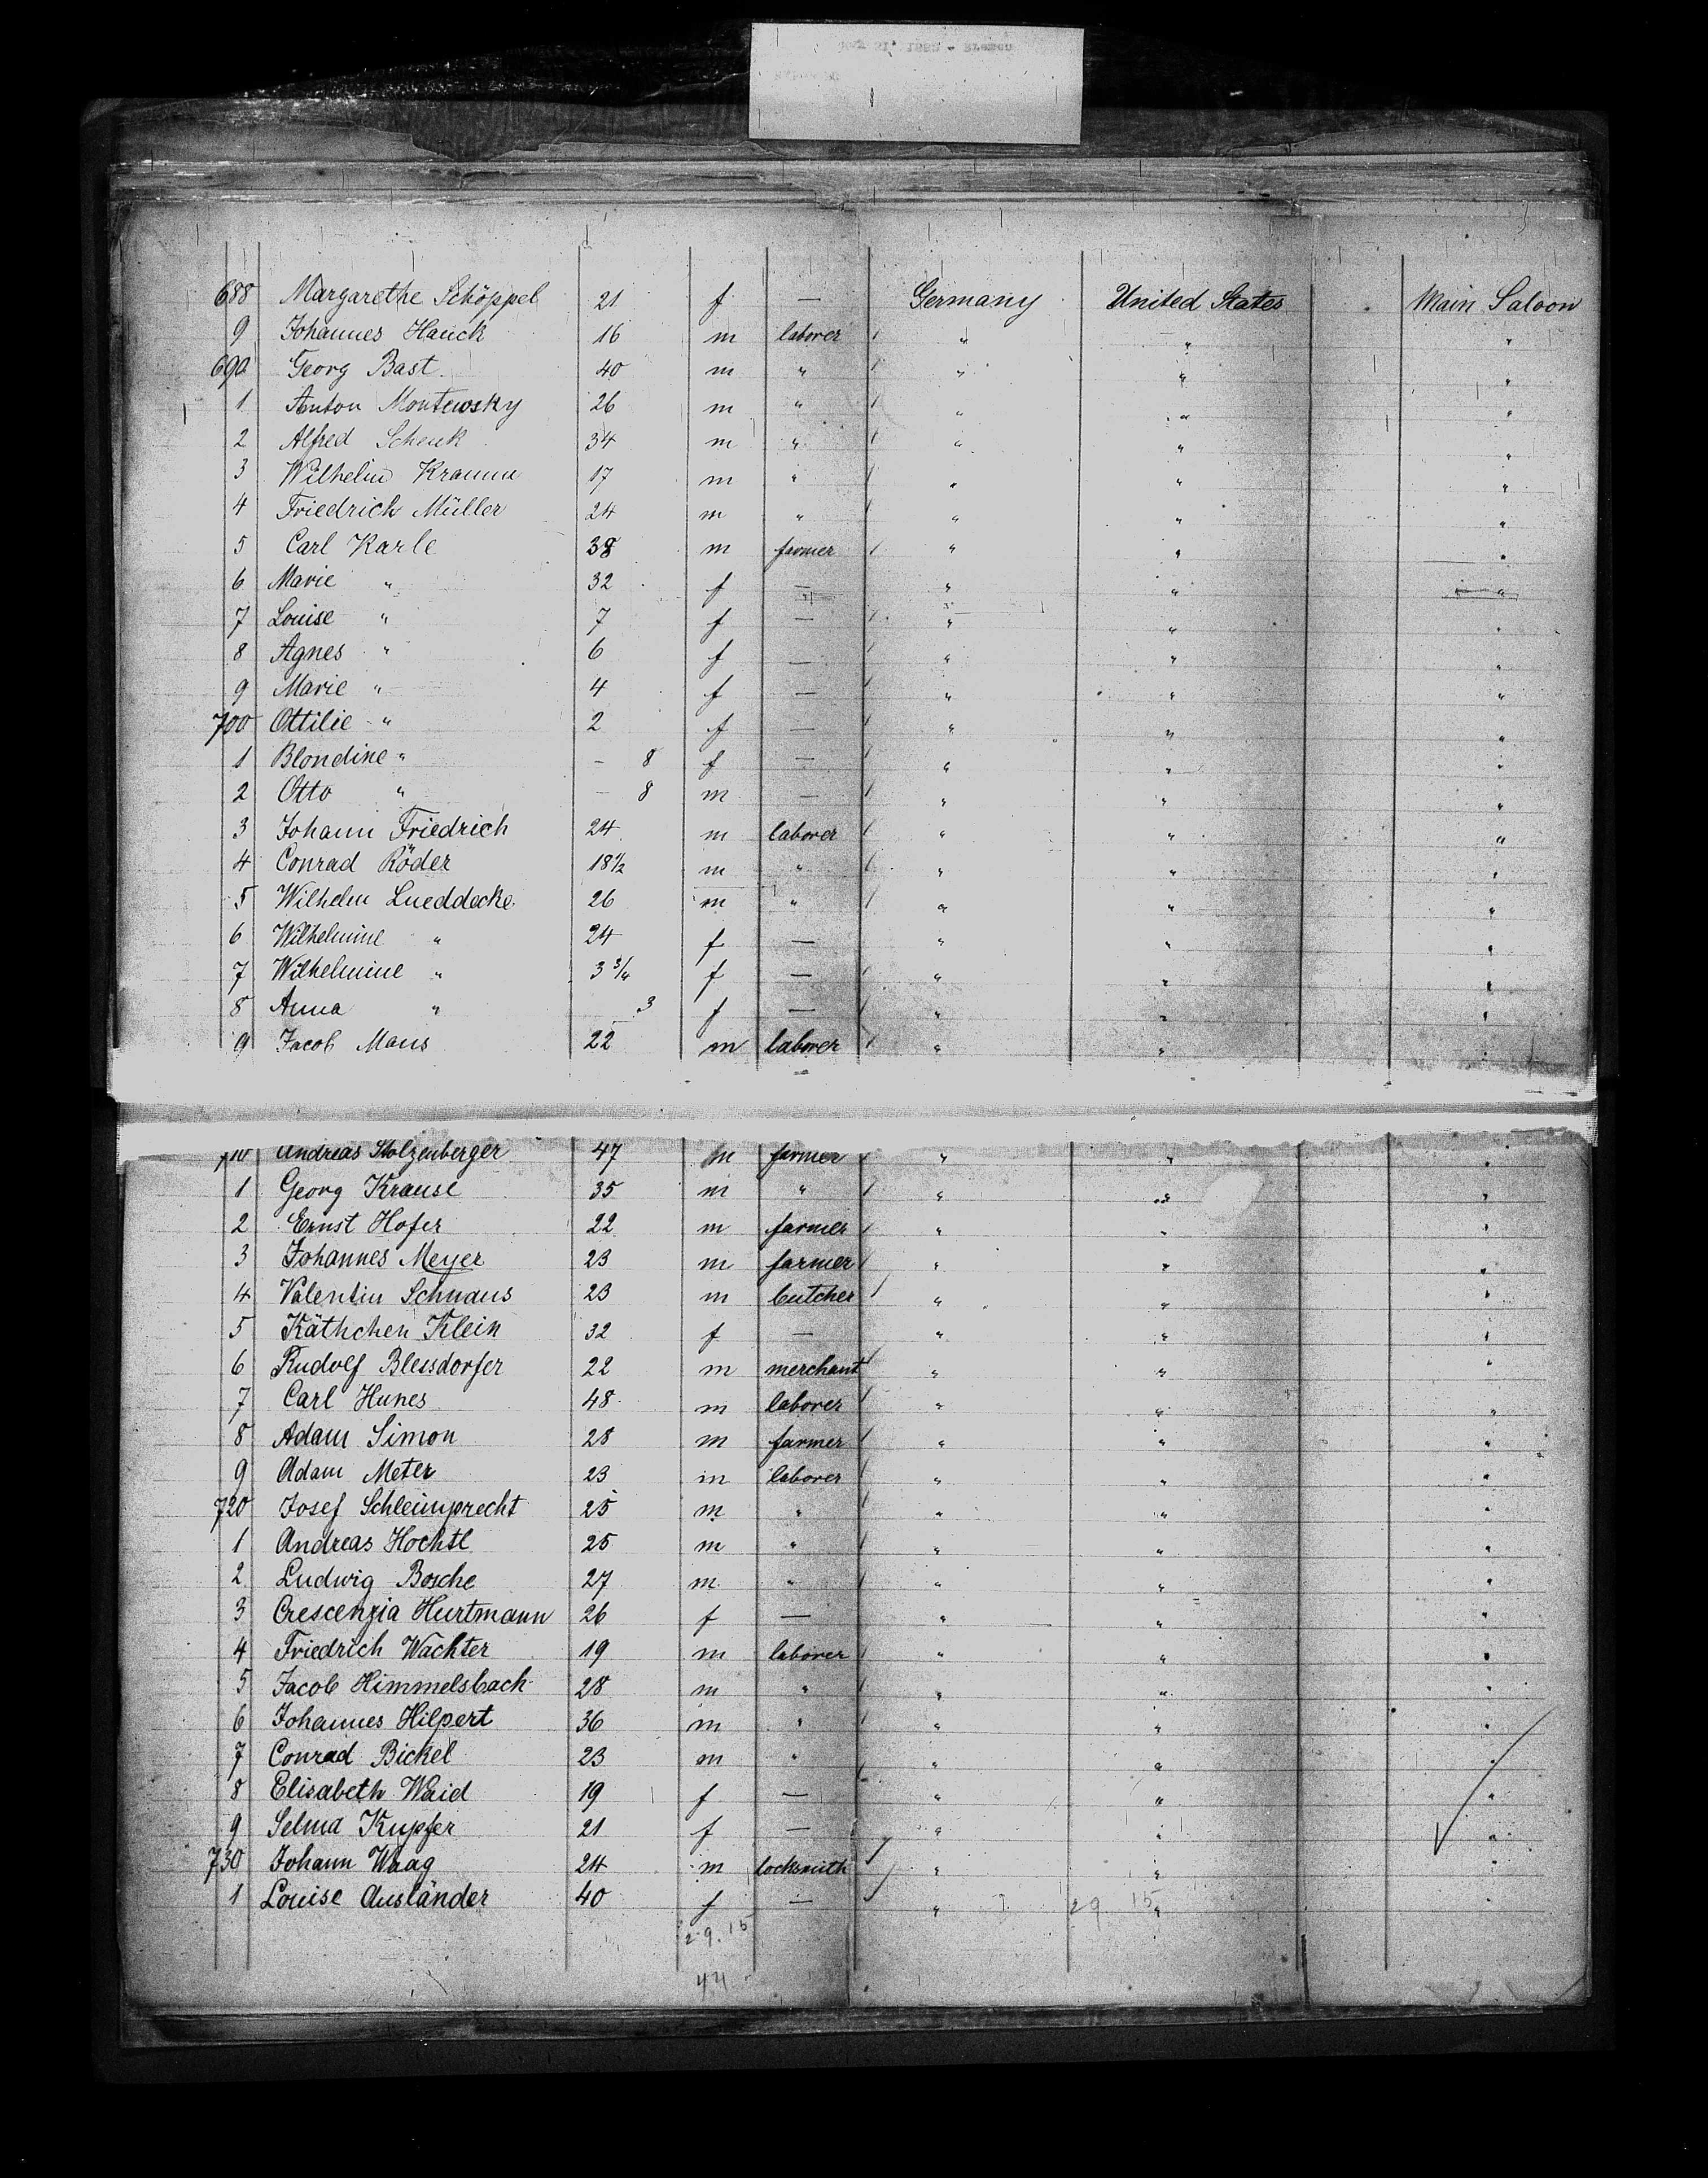 688 Margarethe Schöppel 21 f — Germany United States Main Saloon
9 Johannes Hauck 16 m laborer " " "
690 Georg Bast 40 m " " " "
1 Anton Montewsky 26 m " " " "
2 Alfred Schenk 34 m " " " "
3 Wilhelm Kramm 17 m " " " "
4 Friedrich Müller 24 m " " " "
5 Carl Karle 38 m farmer " " "
6 Marie " 32 f — " " "
7 Louise " 7 f — " " "
8 Agnes " 6 f — " " "
9 Marie " 4 f — " " "
700 Ottilie " 2 f — " " "
1 Blondine " – 8 f — " " "
2 Otto " – 8 m — " " "
3 Johann Friedrich 24 m laborer " " "
4 Conrad Röder 18½ m " " " "
5 Wilhelm Lueddecke 26 m " " " "
6 Wilhelmine " 24 f — " " "
7 Wilhelmine " 3 ¾ f — " " "
8 Anna " 3 f — " " "
9 Jacob Maus 22 m laborer " " "
710 Andreas Stolzenberger 47 m farmer " " "
1 Georg Krause 35 m " " " "
2 Ernst Hofer 22 m farmer " " "
3 Johannes Meyer 23 m farmer " " "
4 Valentin Schnaus 23 m butcher " " "
5 Käthchen Klein 32 f — " " "
6 Rudolf Blessdorfer 22 m merchant " " "
7 Carl Hunes 48 m laborer " " "
8 Adam Simon 28 m farmer " " "
9 Adam Meter 23 m laborer " " "
720 Josef Schleimprecht 25 m " " " "
1 Andreas Hochtl 25 m " " " "
2 Ludwig Bosche 27 m " " " "
3 Crescenzia Hurtmann 26 f — " " "
4 Friedrich Wachter 19 m laborer " " "
5 Jacob Himmelsbach 28 m " " " "
6 Johannes Hilpert 36 m " " " "
7 Conrad Bickel 23 m " " " "
8 Elisabeth Waid 19 f — " " "
9 Selma Kupfer 21 f — " " "
730 Johann Waag 24 m locksmith " " "
1 Louise Ausländer 40 f — " " "
29 15
29.15
44